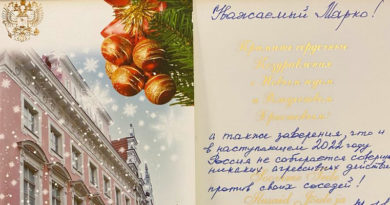 Уважаемый Марко!
Примите сердечные
поздравления
с Новым годом
и Рождеством
Христовым!
а также заверения, что и
в наступающем 2026 году
Россия не собирается соверш
никаких агрессивных действи
против своих соседей!